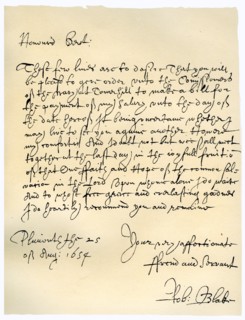 Honoured Bror:
These few lines are to desire That you will
be please to give order unto the Commissioners
of the Navy at Towerhill to make a bill for
the payment of my salary unto the day of
the date hereof It being uncertaine whether I
may live to see you againe another However
my comfort And doubt not but wee shall meet
together at the last day in the joyfull fruition
of that One faith and Hope of the common Sal-
vation in the Lord Upon whom alone I do waite
And to whose free grace and everlasting goodnes
I do heartily recommend you and remaine
Plimouth the 25
of Aug: 1654
Your very affectionate
ffreind and Servant
Rob: Blake